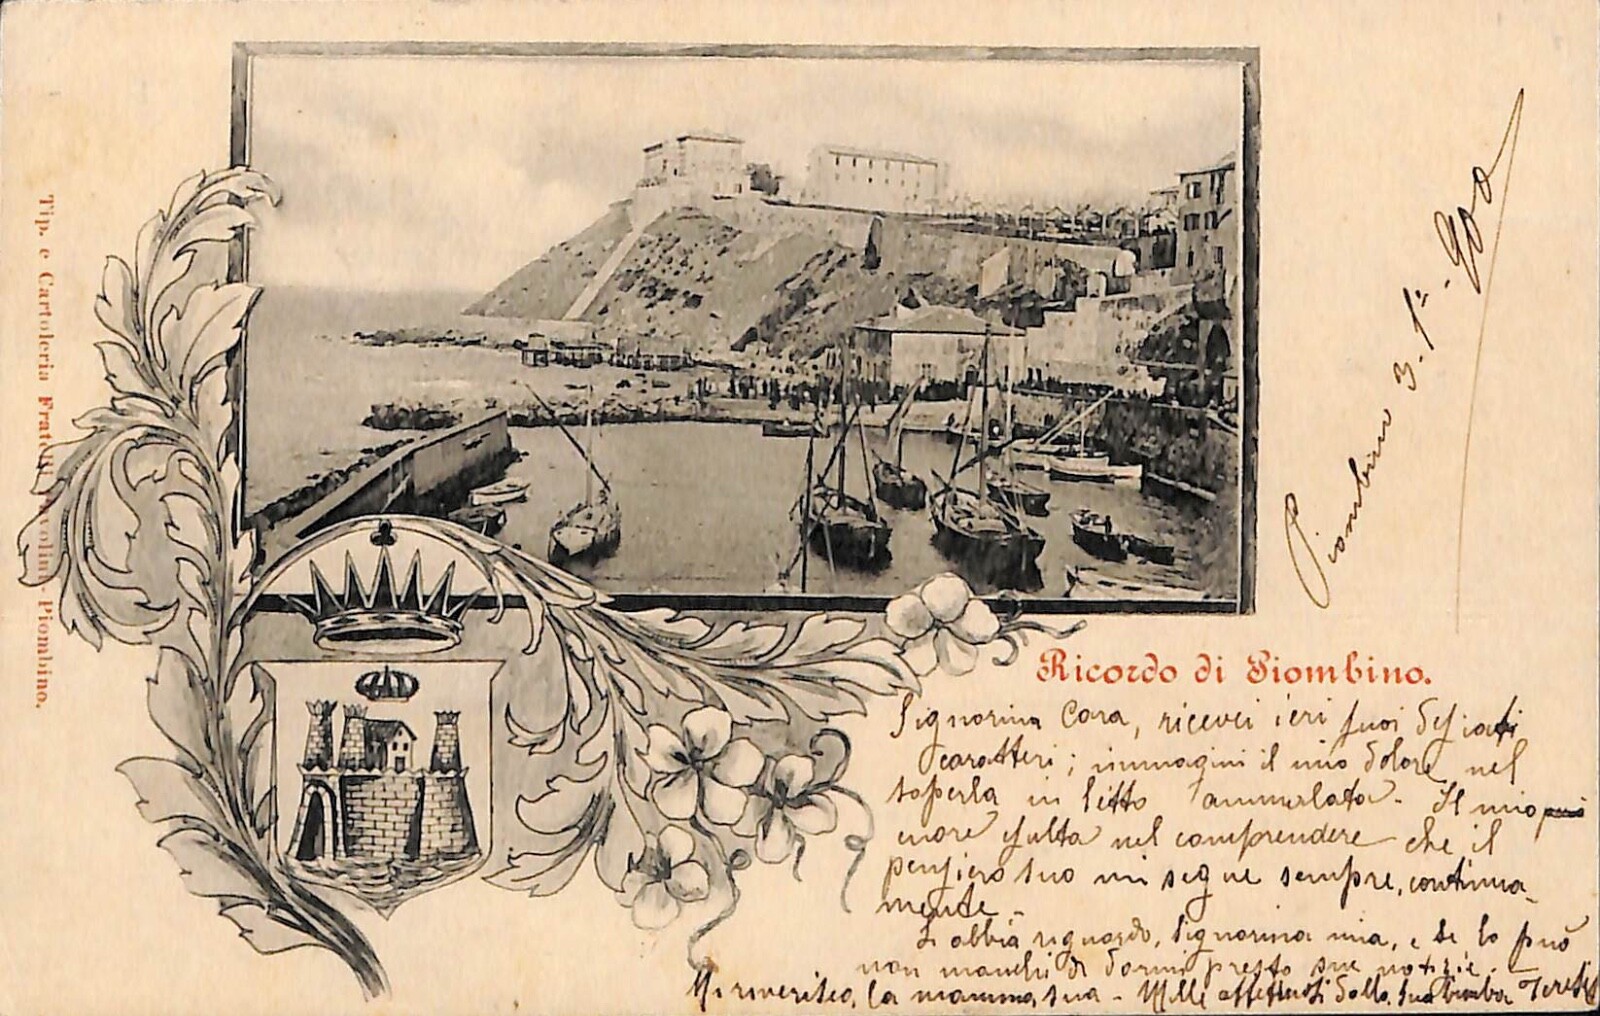 Tip. e Cartoleria Fratelli - Piombino.
Piombino 3. 1º. 900
Ricordo di Piombino.
Signorina Cara, ricevei ieri suoi desiati
caratteri; immagini il mio dolore nel
saperla in letto ammalata. Il mio
cuore esulta nel comprendere che il
pensiero suo mi segue sempre, continua-
mente.
Si abbia riguardo, Signorina mia, e se lo può
non manchi di darmi presto sue notizie.
Mi riverisca la mamma sua - Mille affettuosi dalla sua bimba